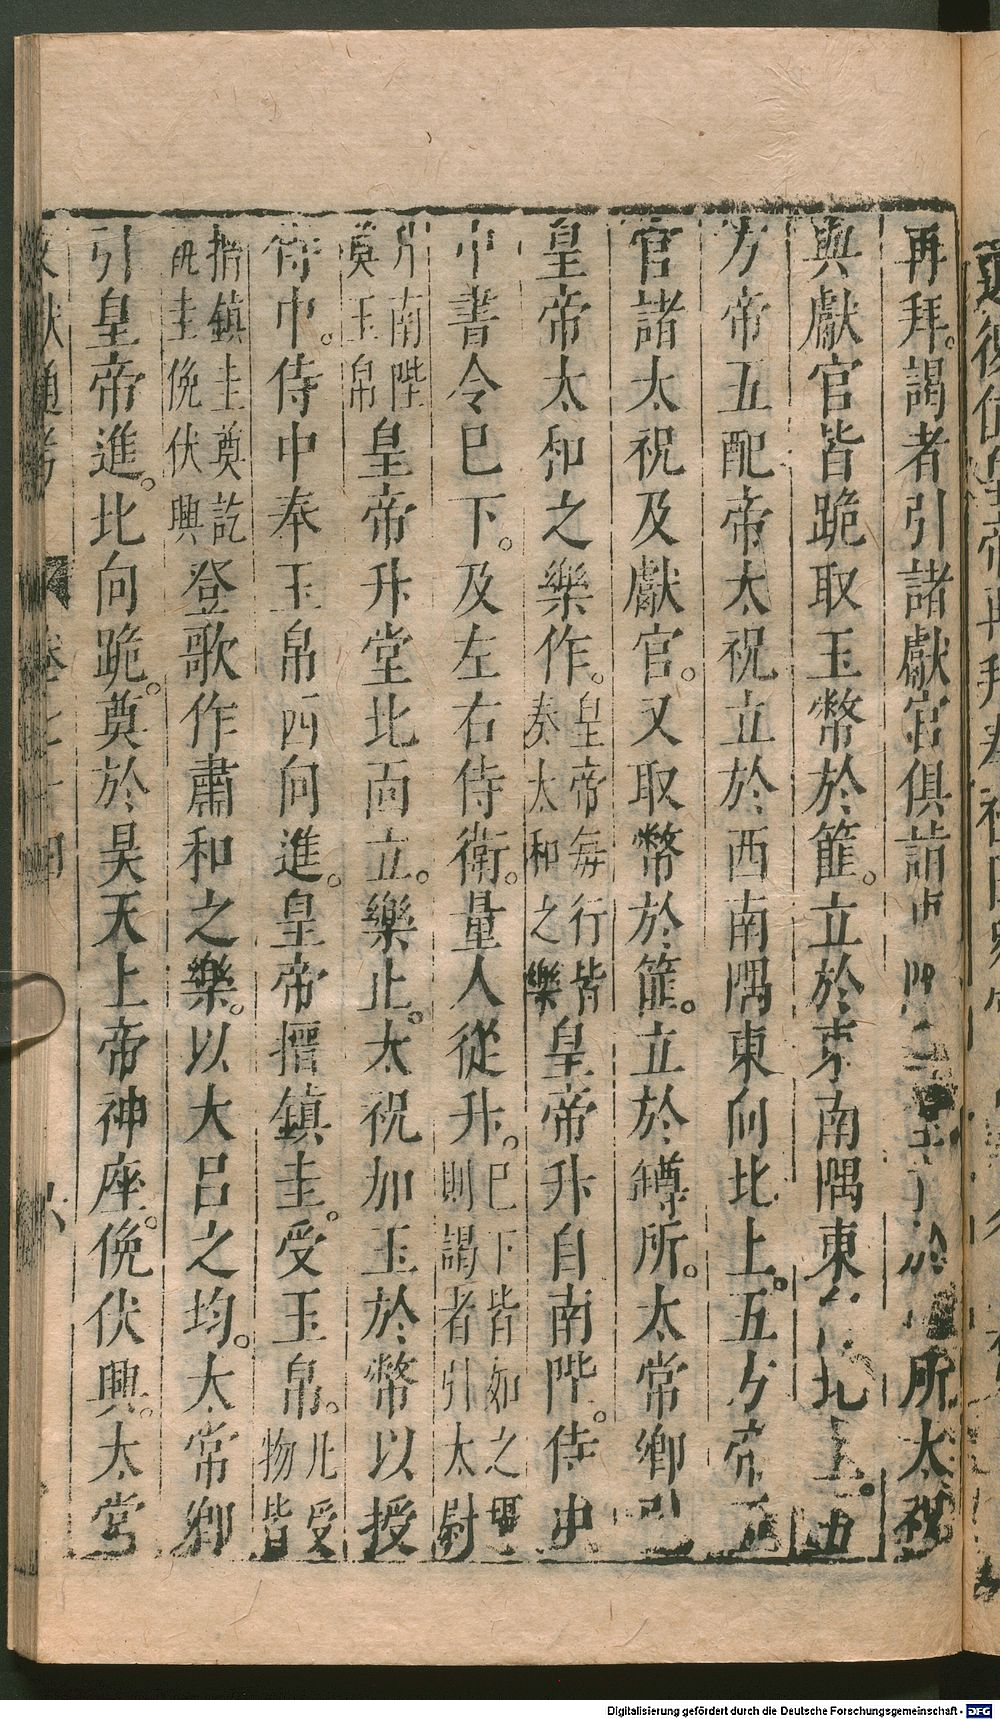 再拜。謁者引諸獻官俱詣 所太祝
與獻官皆跪取玉幣於篚。立於東南隅東 北上。五
方帝五配帝太祝立於西南隅東向北上。五方帝五
官諸太祝及獻官。又取幣於篚。立於罇所。太常卿引
皇帝太和之樂作。皇帝每行皆奏太和之樂皇帝升自南陛。侍中
中書令已下。及左右侍衛。量人從升。已下皆如之 則謁者引太尉
升南陛奠玉帛皇帝升堂北面立。樂止。太祝加玉於幣以授
侍中。侍中奉玉帛西向進。皇帝搢鎮圭。受玉帛。凡受物皆
搢鎮圭奠訖執圭俛伏興登歌作肅和之樂。以大呂之均。太常卿
引皇帝進。北向跪。奠於昊天上帝神座。俛伏興。太常
文獻通考 卷七十四 六
Digitalisierung gefördert durch die Deutsche Forschungsgemeinschaft - DFG